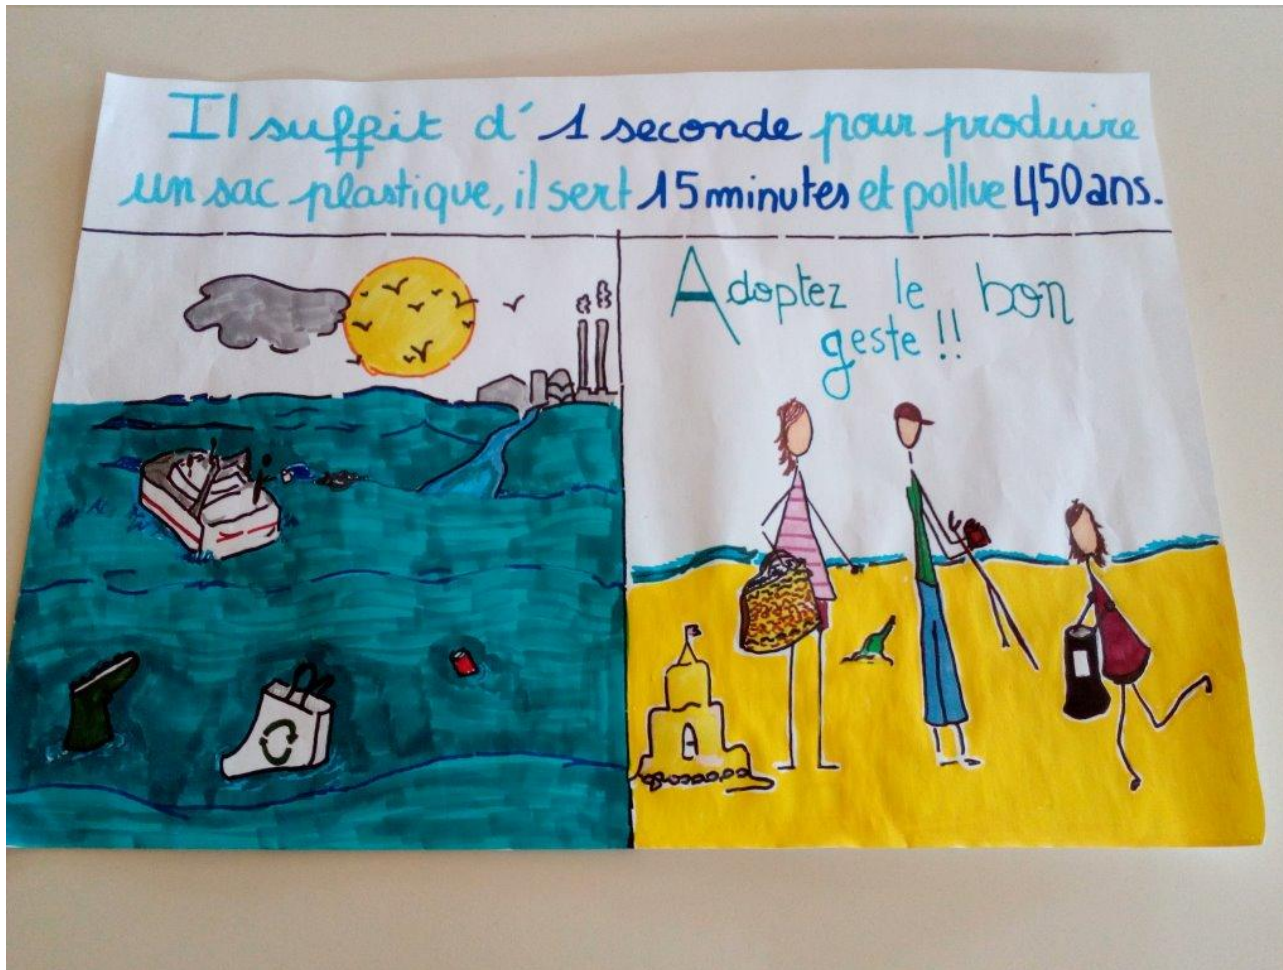 Il suffit d'1 seconde pour produire
un sac plastique, il sert 15 minutes et pollue 450 ans.
Adoptez le bon
geste !!